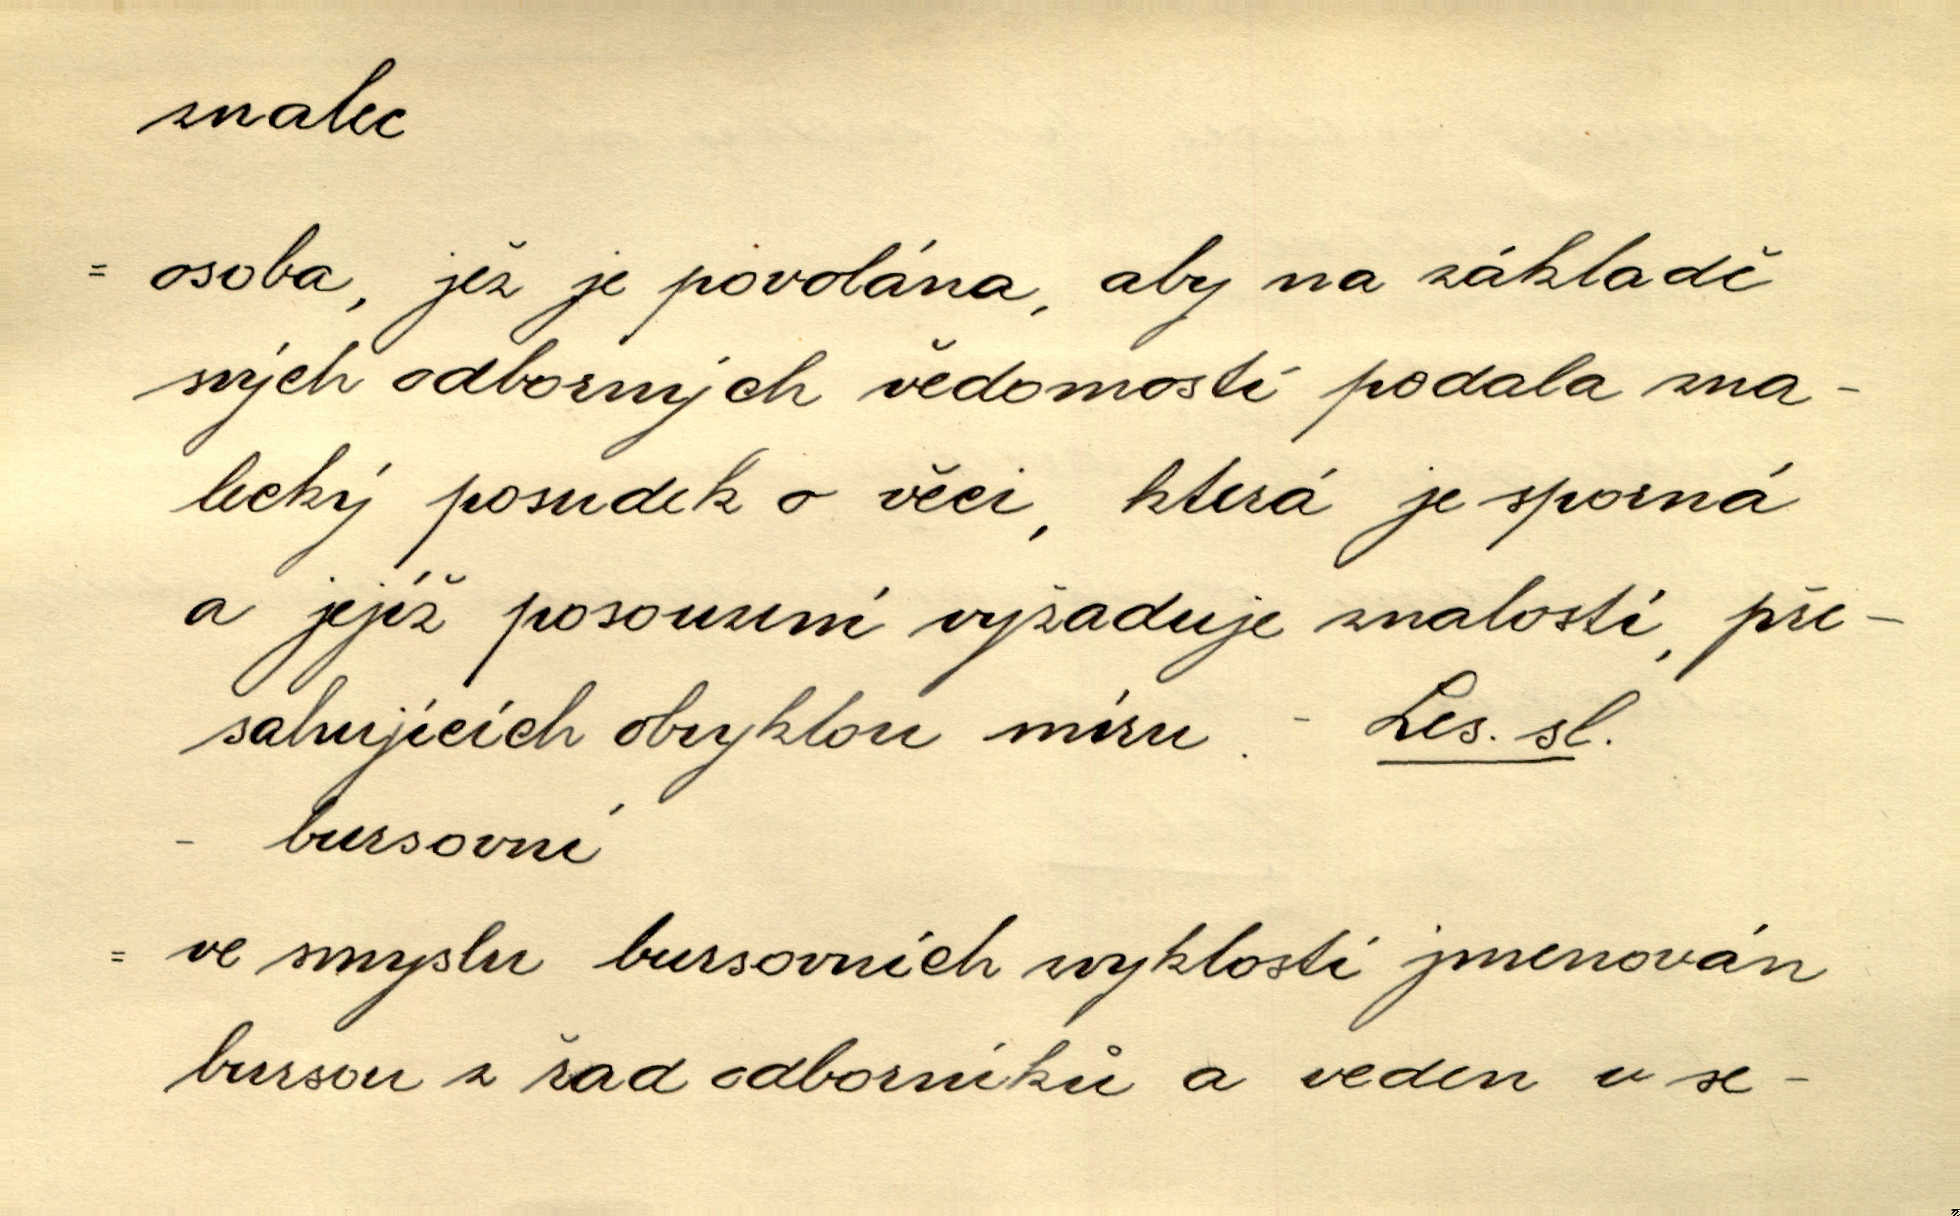 znalec
= osoba, jež je povolána, aby na základě
svých odborných vědomostí podala zna-
lecký posudek o věci, která je sporná
a jejíž posouzení vyžaduje znalostí, pře-
sahujících obvyklou míru. - Les. sl.
- bursovní
= ve smyslu bursovních zvyklostí jmenován
bursou z řad odborníků a veden v se-